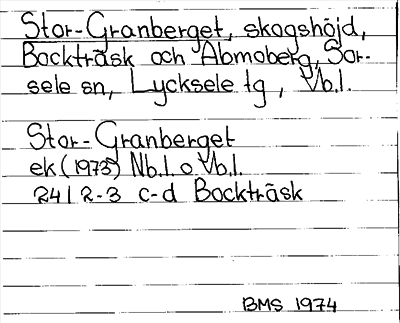 Stor-Granberget, skogshöjd,
Bockträsk och Abmoberg, Sor-
sele sn, Lycksele tg, Vb.l.
Stor-Granberget
ek (1973) Nb.l. o Vb.l.
24I 2-3 c-d Bockträsk
BMS 1974